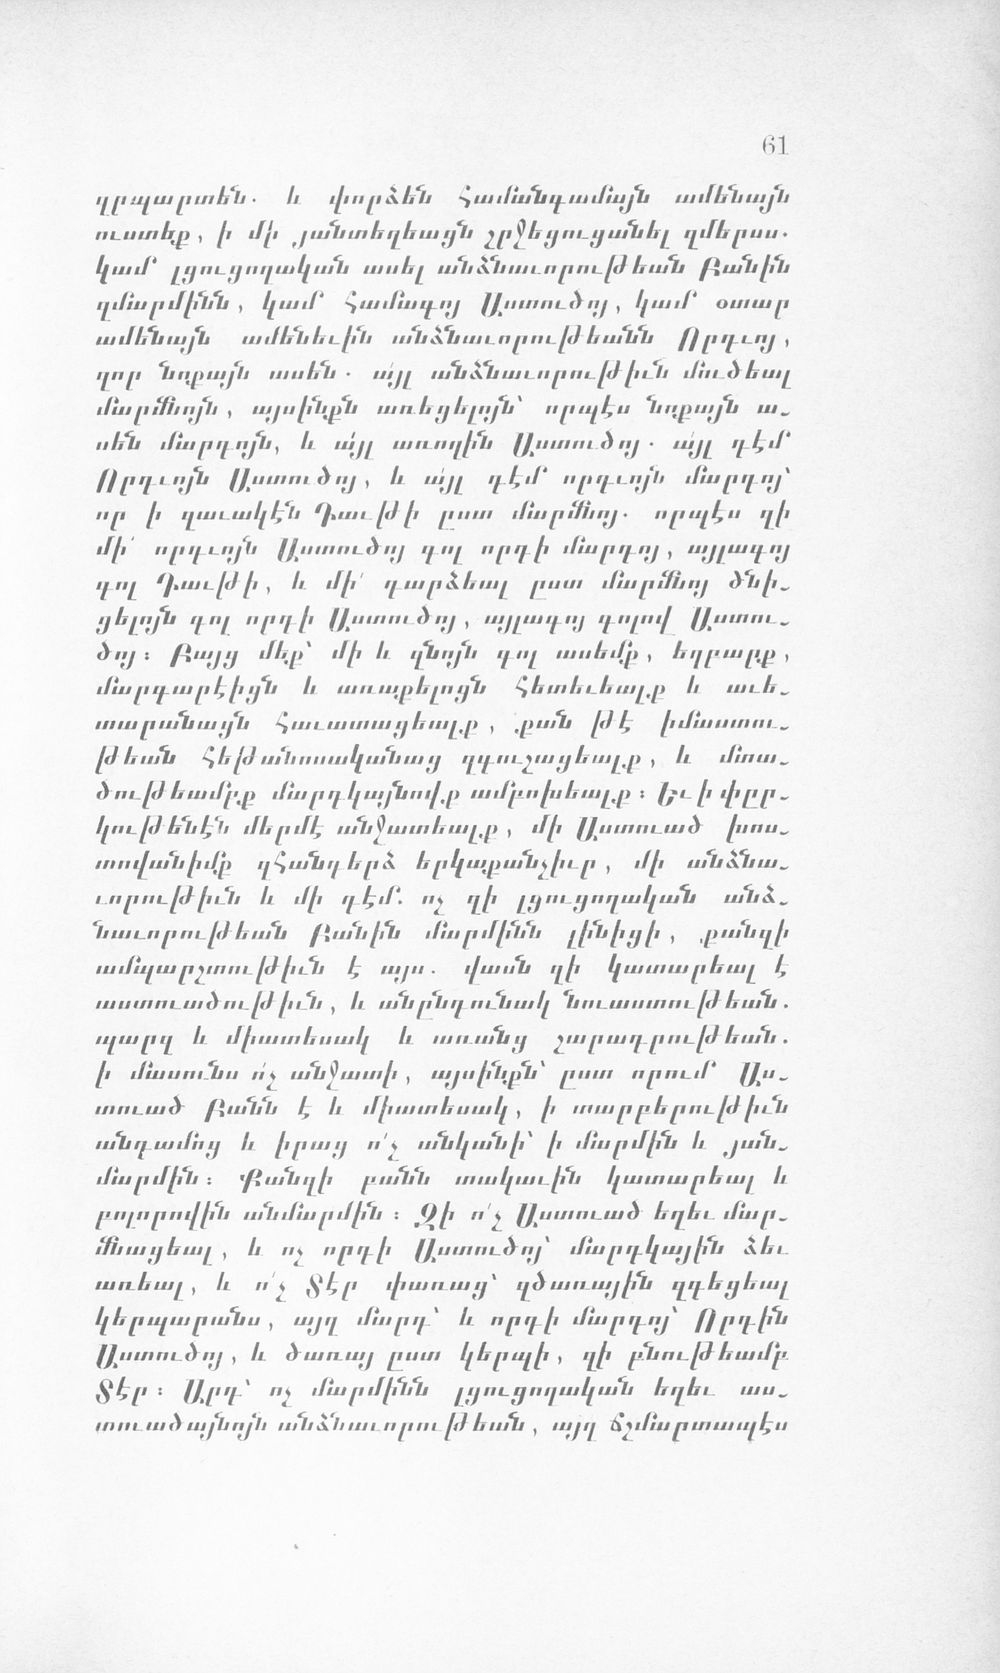 61
զրպարտեն. և փորձեն համանգամայն ամենայն
ուստեք, ի մի յանտեղեացն շրջեցուցանել զմերսս.
կամ լցուցողական ասել անձնաւորութեան Բանին
զմարմինն, կամ համագոյ Աստուծոյ, կամ օտար
ամենայն ամենեւին անձնաւորութեանն Որդւոյ,
զոր նոքայն ասեն. այլ անձնաւորութիւն մուծեալ
մարմնոյն, այսինքն առեցելոյն՝ որպէս նոքայն ա֊
սեն մարդոյն, և այլ առողին Աստուծոյ. այլ դէմ
Որդւոյն Աստուծոյ, և այլ դէմ որդւոյն մարդոյ՝
որ ի զաւակէն Դաւթի ըստ մարմնոյ. որպէս զի
մի՛ որդւոյն Աստուծոյ գոլ որդի մարդոյ, այլագոյ
գոլ Դաւթի, և մի՛ դարձեալ ըստ մարմնոյ ծնի֊
ցելոյն գոլ որդի Աստուծոյ, այլագոյ գոլով Աստու֊
ծոյ: Բայց մեք՝ մի և զնոյն գոլ ասեմք, եղբարք,
մարգարէիցն և առաքելոցն հետեւեալք և աւե֊
տարանացն հաւատացեալք, քան թէ իմաստու֊
թեան հեթանոսականաց զգուշացեալք, և մտա֊
ծութեամբք մարդկայնովք ամբոխեալք: Եւ ի փըր֊
կութենէն մերմէ անջատեալք, մի Աստուած խոս֊
տովանիմք զհանդերձ երկաքանչիւր, մի անձնա֊
ւորութիւն և մի դէմ. ոչ զի լցուցողական անձ֊
նաւորութեան Բանին մարմինն լինիցի, քանզի
ամպարշտութիւն է այս. վասն զի կատարեալ է
աստուածութիւն, և անընդունակ նուաստութեան.
պարզ և միատեսակ և առանց շարադրութեան.
ի մասունս ո՛չ անջատի, այսինքն՝ ըստ որում Աս֊
տուած Բանն է և միատեսակ, ի տարբերութիւն
անդամոց և իրաց ո՛չ անկանի՝ ի մարմին և յան֊
մարմին: Քանզի բանն տակաւին կատարեալ և
բոլորովին անմարմին: Զի ո՛չ Աստուած եղեւ մար֊
մնացեալ, և ոչ որդի Աստուծոյ՝ մարդկային ձեւ
առեալ, և ո՛չ Տէր փառաց՝ զծառային զգեցեալ
կերպարանս, այղ մարդ՝ և որդի մարդոյ՝ Որդին
Աստուծոյ, և ծառայ ըստ կերպի, զի բնութեամբ
Տէր: Արդ՝ ոչ մարմինն լցուցողական եղեւ աս֊
տուածայնոյն անձնաւորութեան, այղ ճշմարտապէս